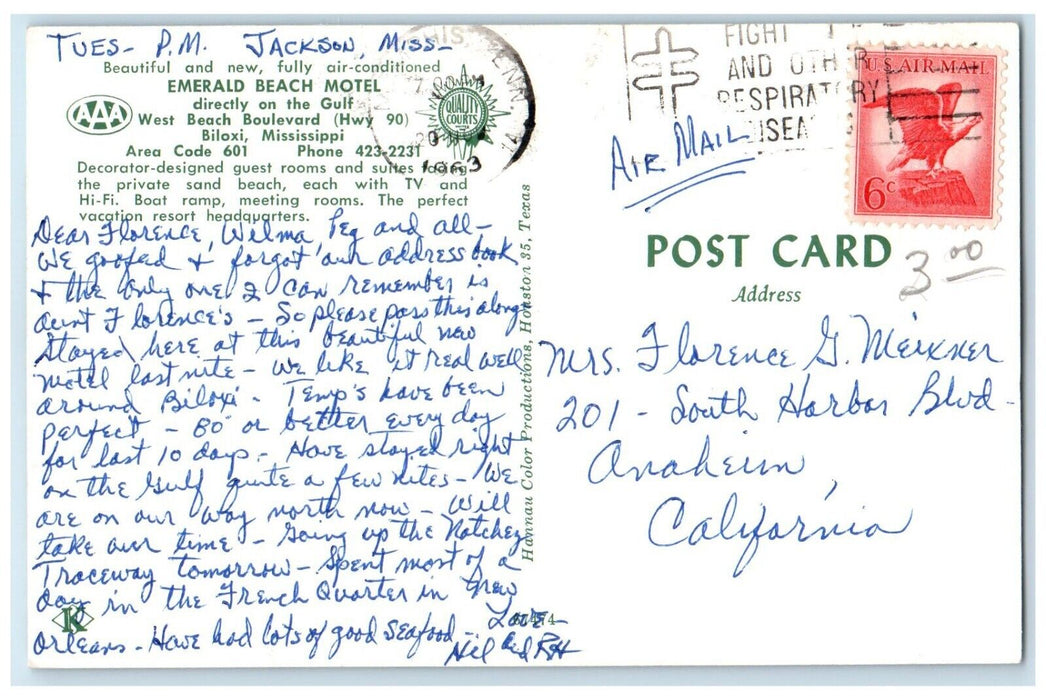 TUES- P.M. JACKSON, MISS-
Beautiful and new, fully air-conditioned
EMERALD BEACH MOTEL
directly on the Gulf
West Beach Boulevard (Hwy 90)
Biloxi, Mississippi
Area Code 601 Phone 423-2231
AAA
QUALITY COURTS
Decorator-designed guest rooms and suites facing
the private sand beach, each with TV and
Hi-Fi. Boat ramp, meeting rooms. The perfect
vacation resort headquarters.
Dear Florence, Wilma, Peg and all-
We goofed & forgot our address book
& the only one I can remember is
aunt Florence's - So please pass this along
Stayed here at this beautiful new
motel last nite - We like it real well
around Biloxi - Temp's have been
perfect - 80° or better every day
for last 10 days - Have stayed right
on the Gulf quite a few nites - We
are on our way north now - Will
take our time - Going up the Natchez
Traceway tomorrow - Spent most of a
day in the French Quarter in New
Orleans - Have had lots of good seafood -
Love -
Hel and
K
Hannau Color Productions, Houston 35, Texas
TENN.
1963
FIGHT T
AND OTHER
RESPIRATORY
DISEASES
U.S. AIR MAIL
6c
AIR MAIL
POST CARD
3.00
Address
Mrs. Florence G. Meixner
201 - South Harbor Blvd-
Anaheim,
California